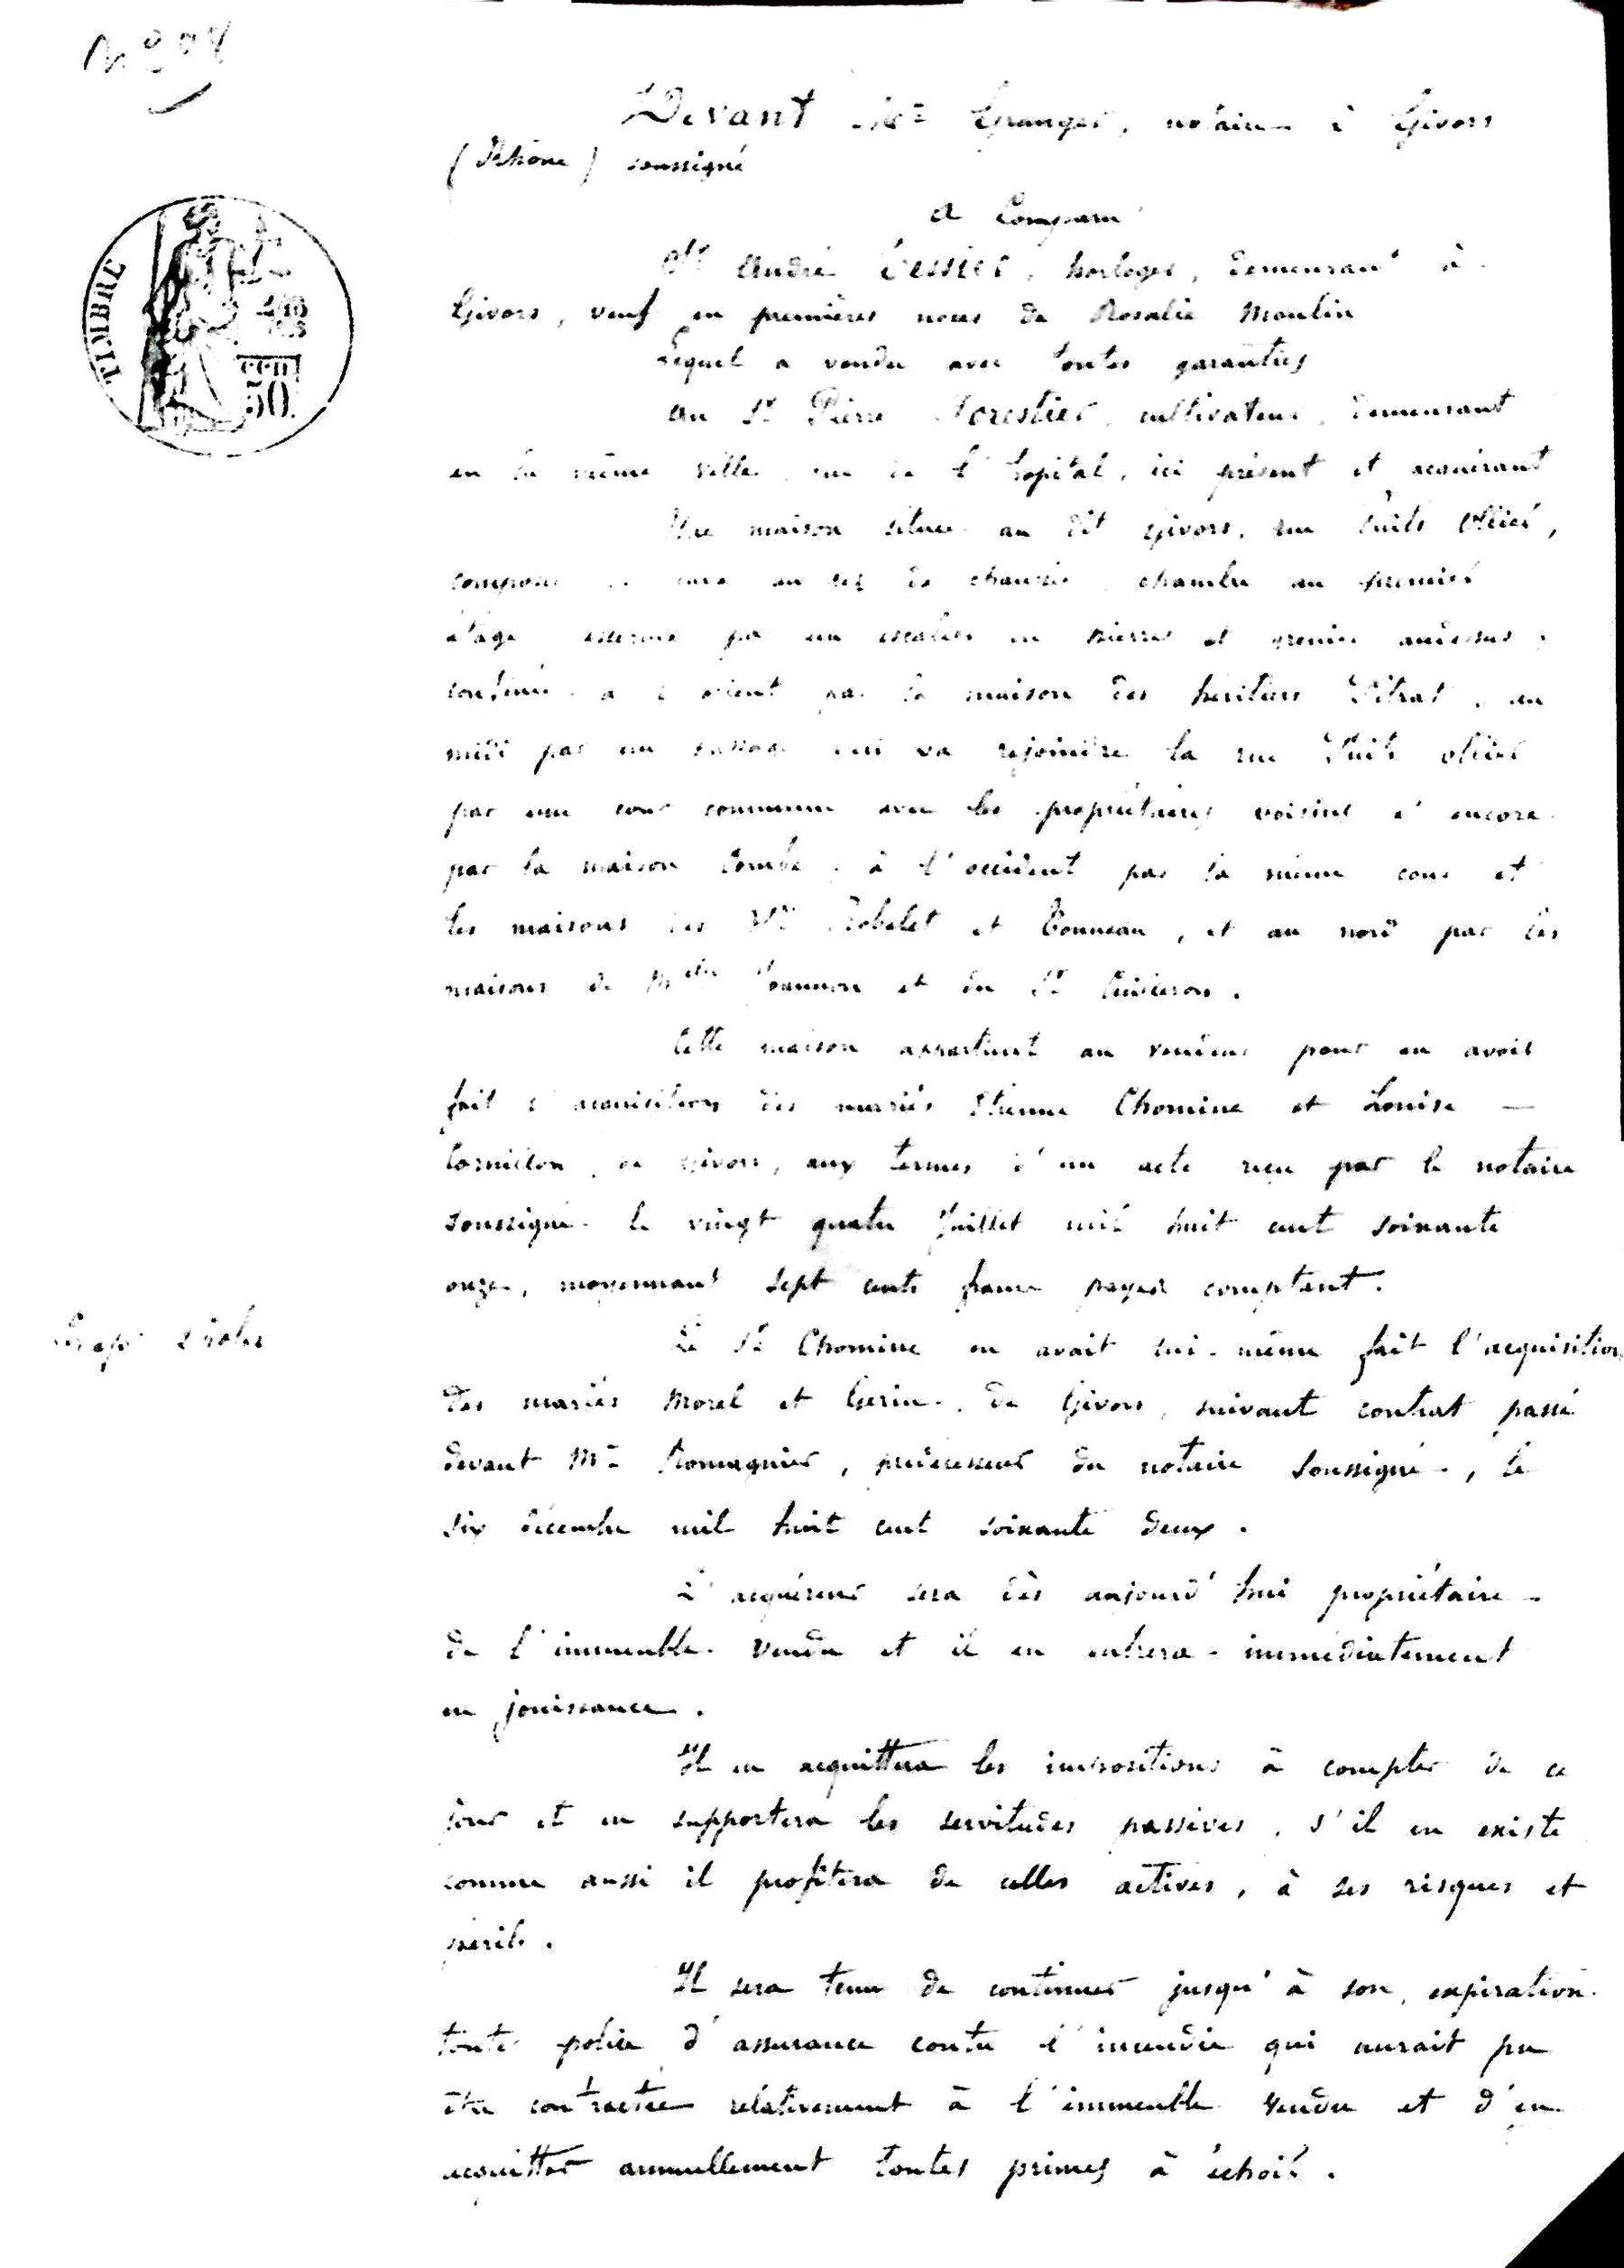 Devant Me Granger, notaire à Givors
(Rhône) soussigné
a comparu
Sr André Tessier, horloger, demeurant à
Givors, veuf en premières noces de Rosalie Moulin
Lequel a vendu avec toutes garanties
au Sr Pierre Forestier, cultivateur, demeurant
en la même ville, rue de l'hopital, ici présent et acquérant
Une maison située au dit Givors, rue Puits Ollier,
TIMBRE
50
composée cave au rez de chaussée, chambre au premier
étage par un escalier en pierres et grenier audessus,
confinée à l'orient par la maison des héritiers Vitrat, au
midi par un passage qui va rejoindre la rue Puits Ollier
par une cour commune avec les propriétaires voisins et encore
par la maison Combe, à l'occident par la même cour et
les maisons des Robelet et Tonneau, et au nord par les
maisons de Melle et du Sr
Cette maison appartient au vendeur pour en avoir
fait l'acquisition des mariés Etienne Chomine et Louise
Cornillon, de Givors, aux termes d'un acte reçu par le notaire
soussigné le vingt quatre Juillet mil huit cent soixante
onze, moyennant sept cents francs payés comptant.
Le Sr Chomine en avait lui-même fait l'acquisition
des mariés Morel et Gerin, de Givors, suivant contrat passé
devant Me Romagnier, prédécesseur du notaire soussigné, le
six décembre mil huit cent soixante deux.
L'acquéreur sera dès aujourd'hui propriétaire
de l'immeuble vendu et il en entrera immédiatement
en jouissance.
Il en acquittera les impositions à compter de ce
jour et en supportera les servitudes passives, s'il en existe
comme aussi il profitera de celles actives, à ses risques et
périls.
Il sera tenu de continuer jusqu'à son expiration
toute police d'assurance contre l'incendie qui aurait pu
être contractée relativement à l'immeuble vendu et d'en
acquitter annuellement toutes primes à échoir.